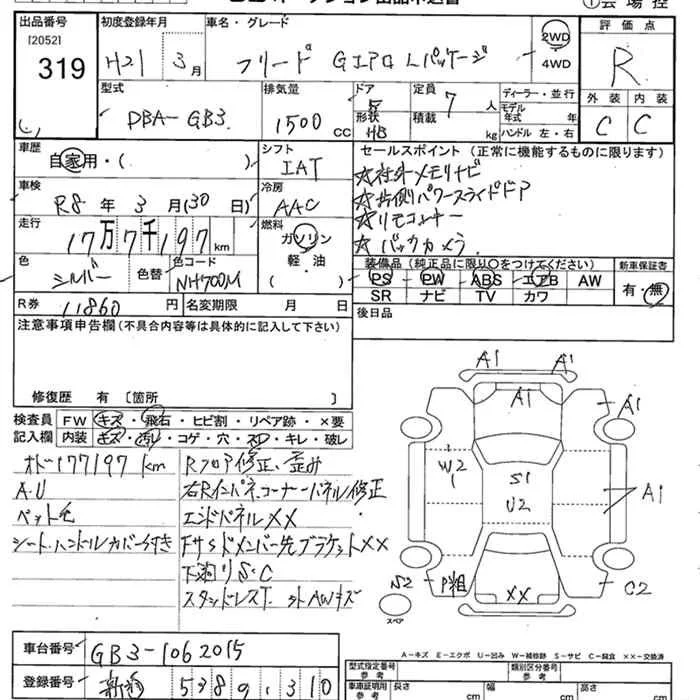 ①会場控
出品番号
[2052]
319
初度登録年月
H21 3月
車名・グレード
フリード Gエアロ Lパッケージ
2WD
4WD
評価点
R
外装 内装
C C
型式
DBA-GB3
排気量
1500cc
ドア
5
形状
HB
定員
7人
積載
kg
ディーラー・並行
モデル
年式 年
ハンドル 左・右
車歴
自家用・( )
シフト
IAT
車検
R8年3月(30日)
冷房
AAC
走行
17万7千197km
燃料
ガソリン
軽・油
( )
色
シルバー
色替
色コード
NH700M
セールスポイント(正常に機能するものに限ります)
☆社外メモリナビ
☆片側パワースライドドア
☆リモコンキー
☆バックカメラ
装備品(純正品に限り○をつけてください)
PS PW ABS エアB AW
SR ナビ TV カワ
新車保証書
有・無
R券 11860円
名変期限 月 日
後日品
注意事項申告欄(不具合内容等は具体的に記入して下さい)
修復歴 有 [箇所 ]
検査員記入欄
FW キズ・飛石・ヒビ割・リペア跡・×要
内装 キズ・汚レ・コゲ・穴・スレ・キレ・破レ
オドー177197km
A.U
ペット毛
シート、ハンドルカバー付き
Rフロア修正、歪み
右Rインパネ、コーナーパネル修正
エンドパネル××
FサSドメンバー先ブラケット××
下廻りS・C
スタッドレスT
A1 A1
A1
A1
W2
1
S1
U2
A1
S2
P粗
××
C2
スペア
A-キズ E-エクボ U-凹み W-補修跡 S-サビ C-腐食 ××-交換済
車台番号
GB3-1062015
登録番号
5389.310
型式指定番号
参考
類別区分番号
参考
車庫証明用
参考
長さ cm
幅 cm
高さ cm